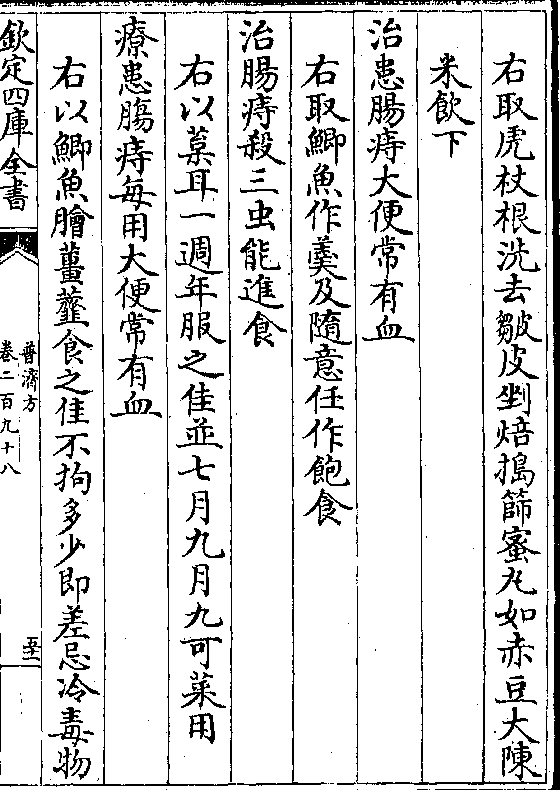 右取虎杖根洗去皺皮剉焙搗篩蜜丸如赤豆大陳
米飲下
治患腸痔大便常有血
右取鯽魚作羮及隨意任作飽食
治腸痔殺三虫能進食
右以菒耳一週年服之佳並七月九月九可菜用
療患腸痔每用大便常有血
右以鯽魚膾薑虀食之佳不拘多少即差忌冷毒物
欽定四庫全書
普濟方
卷二百九十八